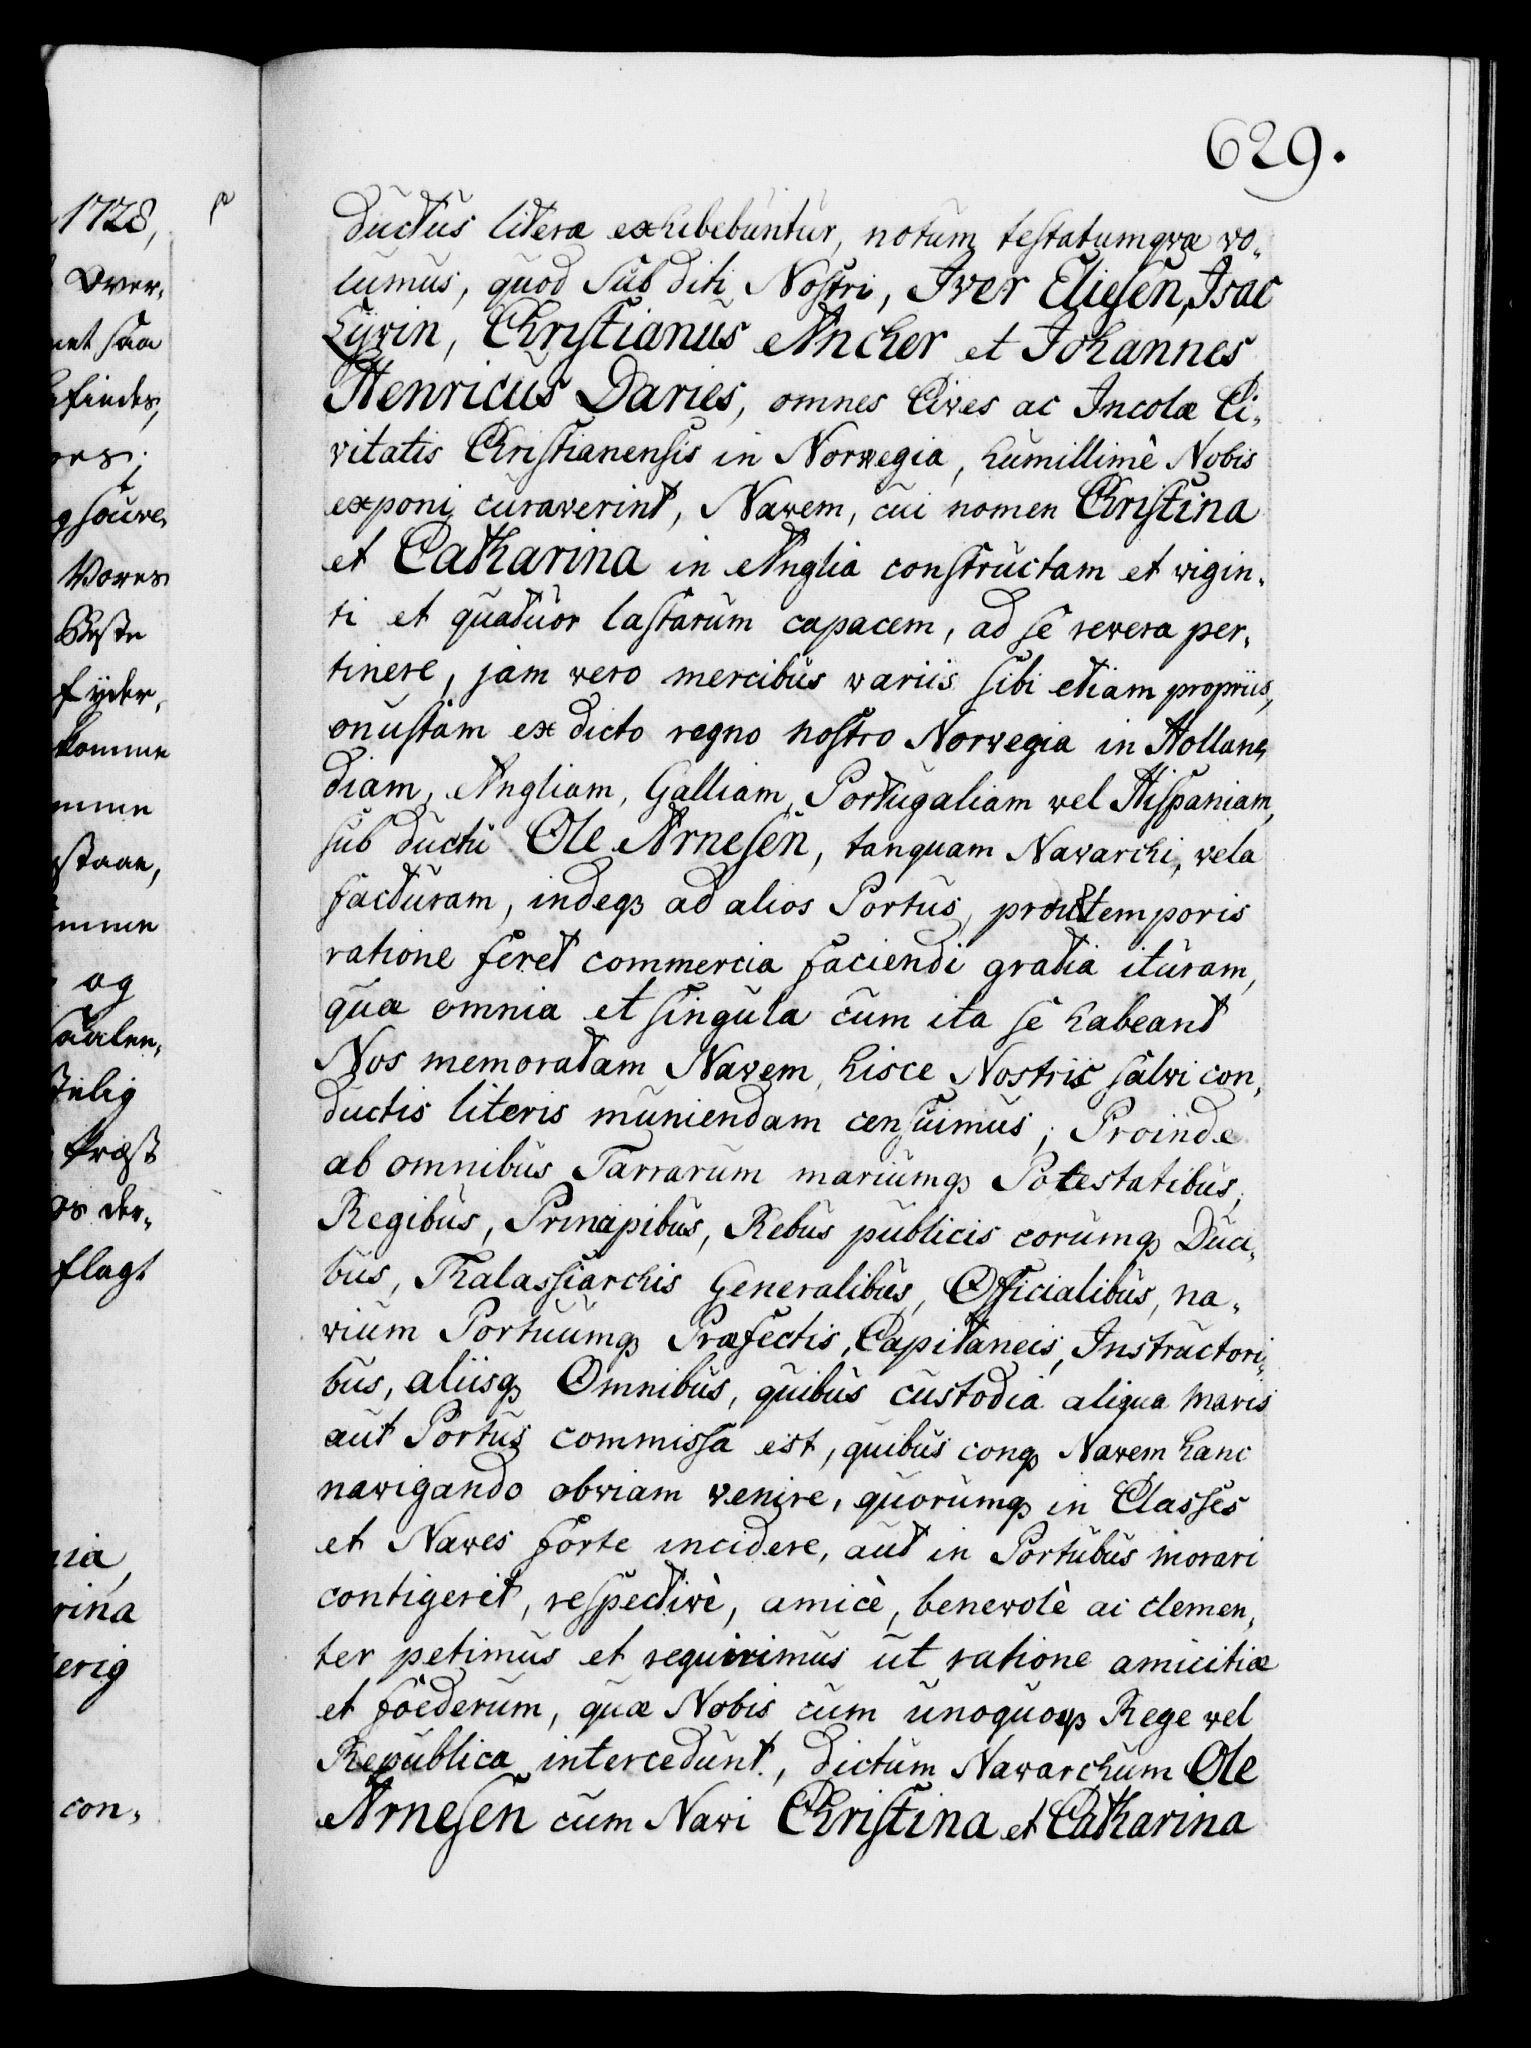 629.
1728,
Over-
net saa
findes,
Vores
Beste
komme
og
Kraft
con-
ductus literæ exhibebuntur, notum testatumqvæ vo-
lumus, quod Subditi Nostri, Iver Eliesen, Isac
Lyvin, Christianus Ancher et Johannes
Henricus Daries, omnes Cives ac Incolæ Ci-
vitatis Christianensis in Norwegia, humillimè Nobis
exponi curaverint, Navem, cui nomen Christina
et Catharina in Anglia constructam et vigin-
ti et quatuor lastarum capacem, ad se revera per-
tinere, jam vero mercibus variis sibi etiam propriis,
onustam ex dicto regno nostro Norwegia in Hollan-
diam, Angliam, Galliam, Portugaliam vel Hispaniam,
sub ductu Ole Arnesen, tanquam Navarchi, vela
facturam, indeqꝫ ad alios Portus, prout temporis
ratione feret commercia faciendi gratia ituram,
quæ omnia et singula cum ita se habeant
Nos memoratam Navem, hisce Nostris salvi con-
ductis literis muniendam censuimus; Proinde
ab omnibus Tarrarum mariumqꝫ Potestatibus,
Regibus, Principibus, Rebus publicis eorumqꝫ Duci-
bus, Thalassiarchis Generalibus, Officialibus, na-
vium Portuumqꝫ Præfectis, Capitaneis, Instructori-
bus, aliisqꝫ Omnibus, quibus custodia aliqua maris
aut Portus commissa est, quibus conqꝫ Navem hanc
navigando obviam venire, quorumqꝫ in Classes
et Naves forte incidere, aut in Portubus morari
contigerit, respectivè, amicè, benevolè ac clemen-
ter petimus et requirimus ut ratione amicitiæ
et foederum, quæ Nobis cum unoquoqꝫ Rege vel
Republica intercedunt, dictum Navarchum Ole
Arnesen cum Navi Christina et Catharina